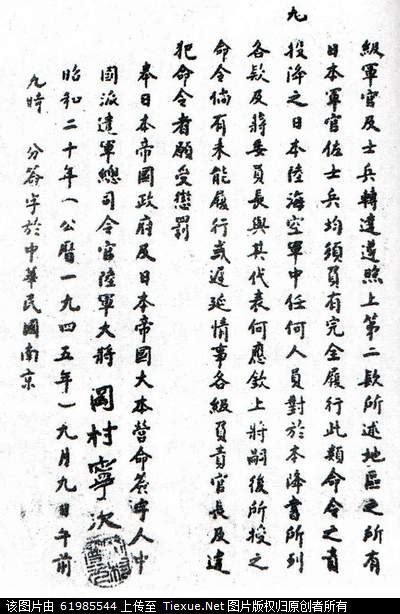 級軍官及士兵轉達遵照上第二款所述地區之所有
日本軍官佐士兵均須負有完全履行此類命令之責
九 投降之日本陸海空軍中任何人員對於本降書所列
各款及蔣委員長與其代表何應欽上將嗣後所授之
命令倘有未能履行或遲延情事各級負責官長及違
犯命令者願受懲罰
奉日本帝國政府及日本帝國大本營命簽字人中
國派遣軍總司令官陸軍大將 岡村寧次
昭和二十年(公曆一九四五年)九月九日午前
九時 分簽字於中華民國南京
该图片由 61985544 上传至 Tiexue.Net 图片版权归原创者所有